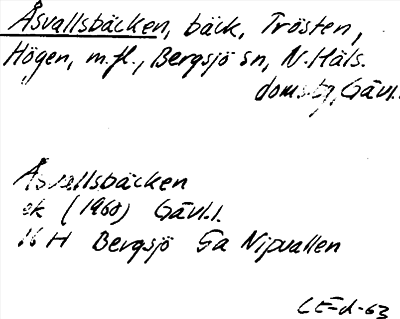 Åsvallsbäcken, bäck, Trösten,
Högen, m.fl., Bergsjö sn, N. Häls.
doms.bg, Gävl.
Åsvallsbäcken
ek (1968) Gävl.l.
16 H Bergsjö 5a Nipvallen